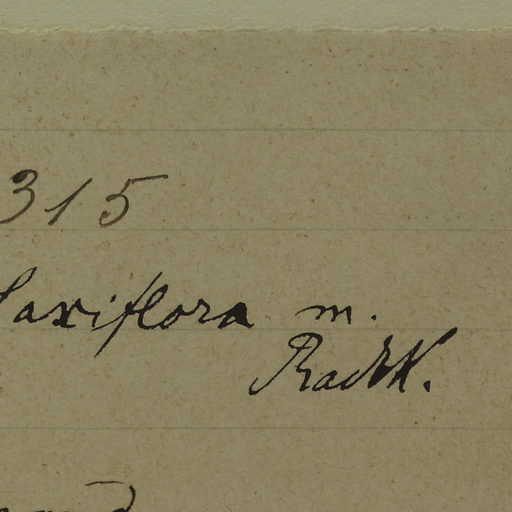 315
laxiflora m.
Radlk.